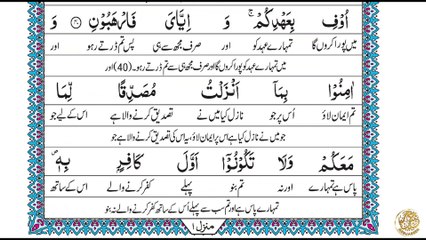 اُوْفِ بِعَهْدِكُمْ ۚ وَ اِيَّايَ فَارْهَبُوْنِ ﴿۴۰﴾ وَ
میں پورا کروں گا تمہارے عہد کو اور صرف مجھ سے ہی پس تم ڈرتے رہو اور
میں تمہارے عہد کو پورا کروں گا اور صرف مجھ ہی سے تم ڈرتے رہو۔ (40) اور
اٰمِنُوْا بِمَآ اَنْزَلْتُ مُصَدِّقًا لِّمَا
تم ایمان لاؤ اُس پر جو نازل کیا میں نے تصدیق کرنے والا ہے اس کے لیے جو
جو میں نے نازل کیا ہے اس پر ایمان لاؤ، یہ اس کی تصدیق کرنے والا ہے جو
مَعَكُمْ وَلَا تَكُوْنُوْٓا اَوَّلَ كَافِرٍۭ بِهٖ ۪
پاس ہے تمہارے اور نہ تم بنو پہلے کفر کرنے والے اس کے ساتھ
تمہارے پاس ہے اور تم سب سے پہلے اُس کے ساتھ کفر کرنے والے نہ بنو
منزل ۱